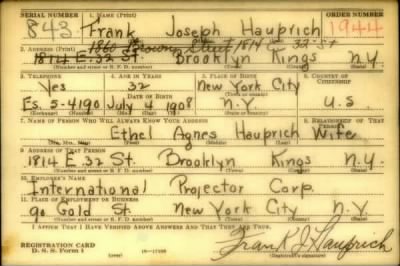 SERIAL NUMBER 1. NAME (Print) ORDER NUMBER
843 Frank Joseph Hauprich 1944
1860 Brown Street 1814 E 32 St
2. ADDRESS (Print)
1814 E. 32 St. Brooklyn Kings N.Y.
(Number and street or R. F. D. number) (Town) (County) (State)
3. TELEPHONE 4. AGE IN YEARS 5. PLACE OF BIRTH 6. COUNTRY OF CITIZENSHIP
Yes 32 New York City
DATE OF BIRTH
Es. 5-4190 July 4 1908 N.Y. U.S.
(Exchange) (Number) (Mo.) (Day) (Yr.) (State or country)
7. NAME OF PERSON WHO WILL ALWAYS KNOW YOUR ADDRESS 8. RELATIONSHIP OF THAT PERSON
Ethel Agnes Hauprich Wife
(Mr., Mrs., Miss) (First) (Middle) (Last)
9. ADDRESS OF THAT PERSON
1814 E. 32 St. Brooklyn Kings N.Y.
(Number and street or R. F. D. number) (Town) (County) (State)
10. EMPLOYER'S NAME
International Projector Corp.
11. PLACE OF EMPLOYMENT OR BUSINESS
90 Gold St. New York City N.Y.
(Number and street or R. F. D. number) (Town) (County) (State)
I AFFIRM THAT I HAVE VERIFIED ABOVE ANSWERS AND THAT THEY ARE TRUE.
REGISTRATION CARD
D. S. S. Form 1 Frank J Hauprich